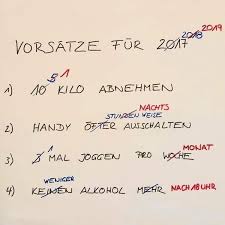 2018 2019
VORSÄTZE FÜR 2017
5 1
1) 10 KILO ABNEHMEN
NACHTS
STUNDENWEISE
2) HANDY ÖFTER AUSSCHALTEN
MONAT
3) 3 1 MAL JOGGEN PRO WOCHE
WENIGER
4) KEINEN ALKOHOL MEHR NACH 18 UHR